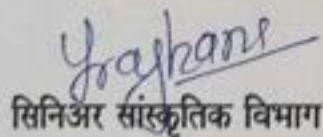 सिनिअर सांस्कृतिक विभाग